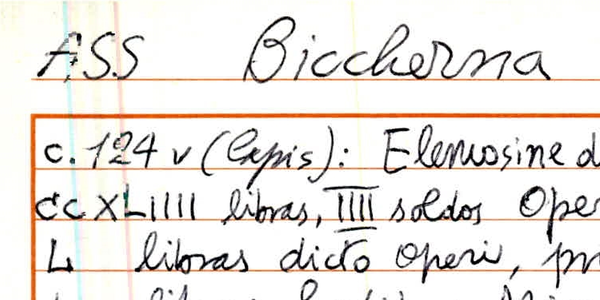 ASS Biccherna
c. 124 v (lapis): Elemosine d
dcc XLIIII libras, IIII soldos Oper
L libras dicto operi, pr